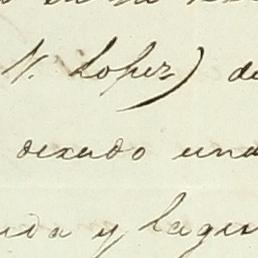 N. Lopez) de
dexado una
y lagu